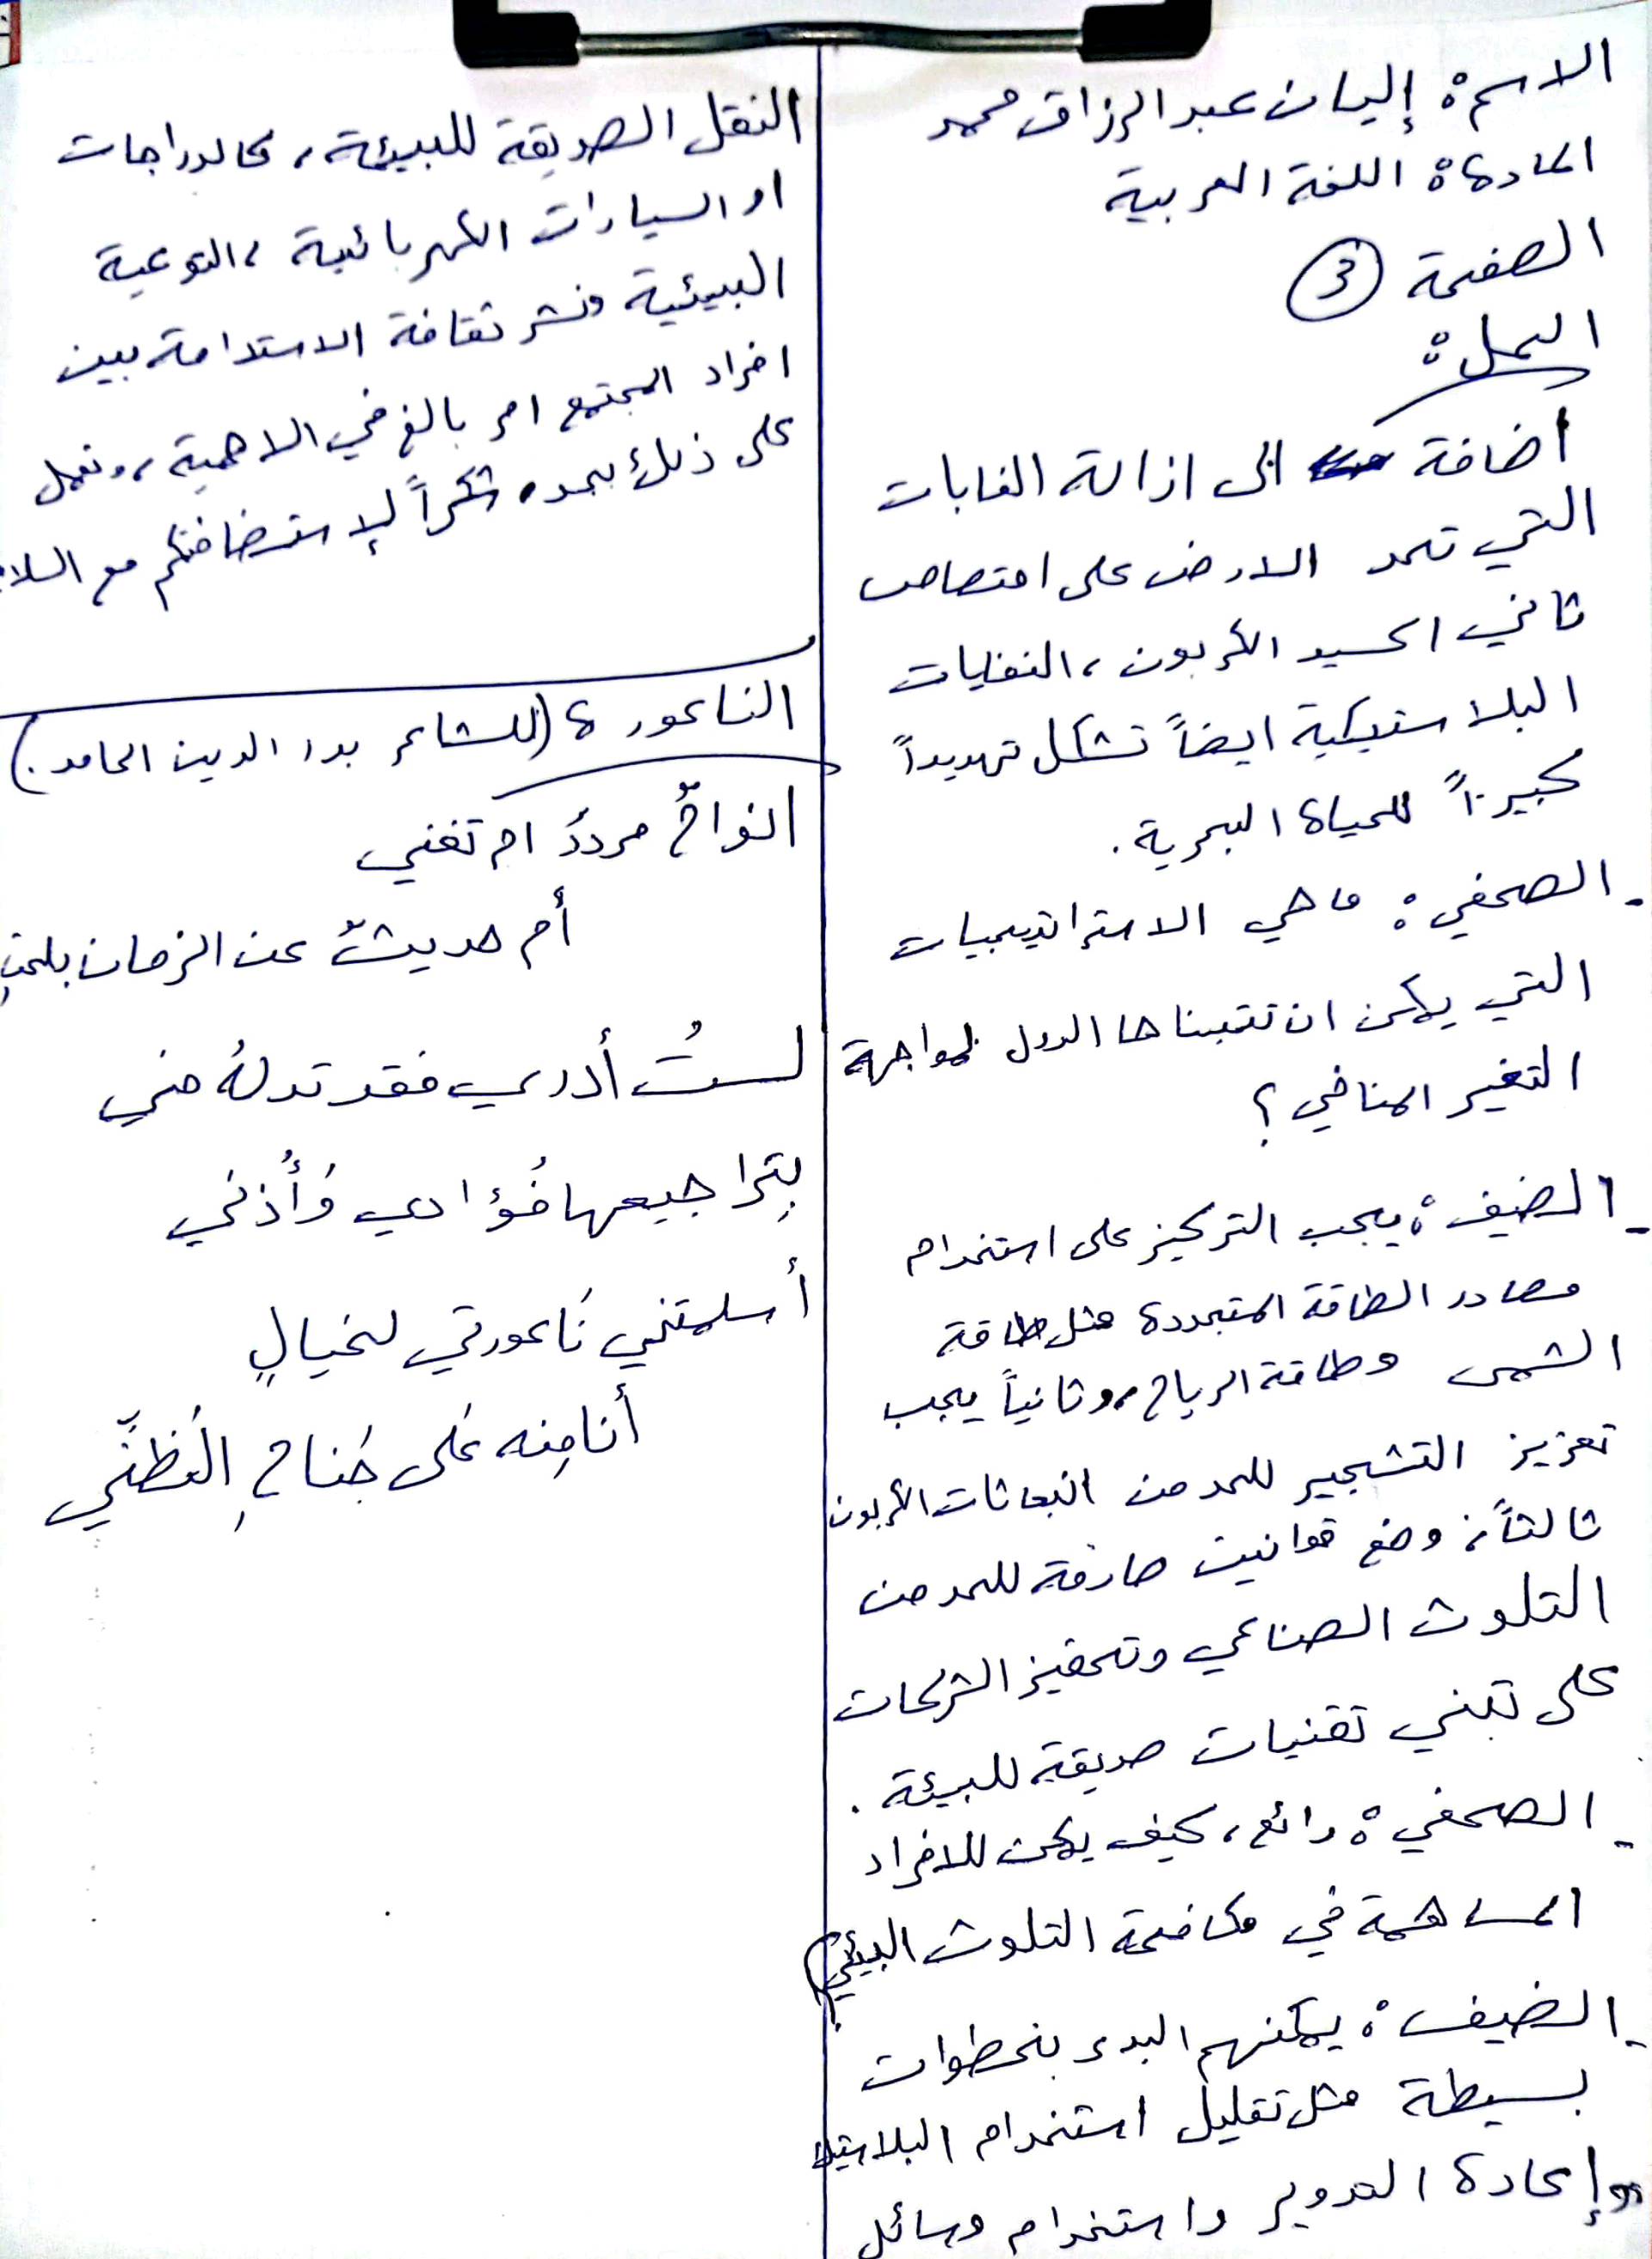 الاسم: إليان عبد الرزاق محمد
المادة: اللغة العربية
الصفحة (3)
الحل:
اضافة الى ازالة الغابات
التي تحد الارض على امتصاص
ثاني اكسيد الكربون، النفايات
البلاستيكية ايضاً تشكل تهديداً
كبيراً للحياة البحرية.
- الصحفي: ما هي الاستراتيجيات
التي يمكن ان تتبناها الدول لمواجهة
التغير المناخي؟
- الضيف: يجب التركيز على استخدام
مصادر الطاقة المتجددة مثل طاقة
الشمس وطاقة الرياح، وثانياً يجب
تعزيز التشجير للحد من انبعاثات الكربون
ثالثاً: وضع قوانين صارمة للحد من
التلوث الصناعي وتحفيز الشركات
على تبني تقنيات صديقة للبيئة.
- الصحفي: رائع، كيف يمكن للافراد
المساهمة في مكافحة التلوث البيئي؟
- الضيف: يمكنهم البدء بخطوات
بسيطة مثل تقليل استخدام البلاستيك
وإعادة التدوير واستخدام وسائل
النقل الصديقة للبيئة، كالدراجات
او السيارات الكهربائية، التوعية
البيئية ونشر ثقافة الاستدامة بين
افراد المجتمع امر بالغ في الاهمية، ونعمل
على ذلك بجد، شكراً لإستضافتكم مع السلامة
الناعورة (للشاعر بدر الدين الحامد.)
انواحٌ مرددُ ام تغني
أم حديثٌ عن الزمان بلحنِ
لستُ أدري فقد تدلهُ مني
بِتراجيعها فُؤادي وَأُذني
أسلمتني نَاعورتي لخيالٍ
أنا مِنه عَلى جَناحِ التَظنّي